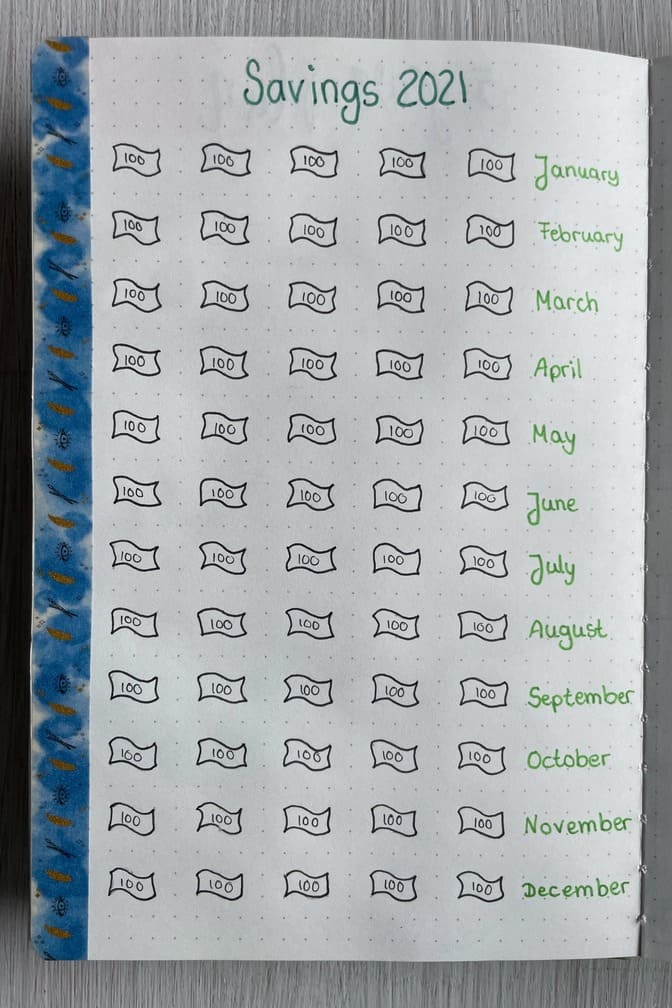 Savings 2021
100 100 100 100 100 January
100 100 100 100 100 February
100 100 100 100 100 March
100 100 100 100 100 April
100 100 100 100 100 May
100 100 100 100 100 June
100 100 100 100 100 July
100 100 100 100 100 August
100 100 100 100 100 September
100 100 100 100 100 October
100 100 100 100 100 November
100 100 100 100 100 December